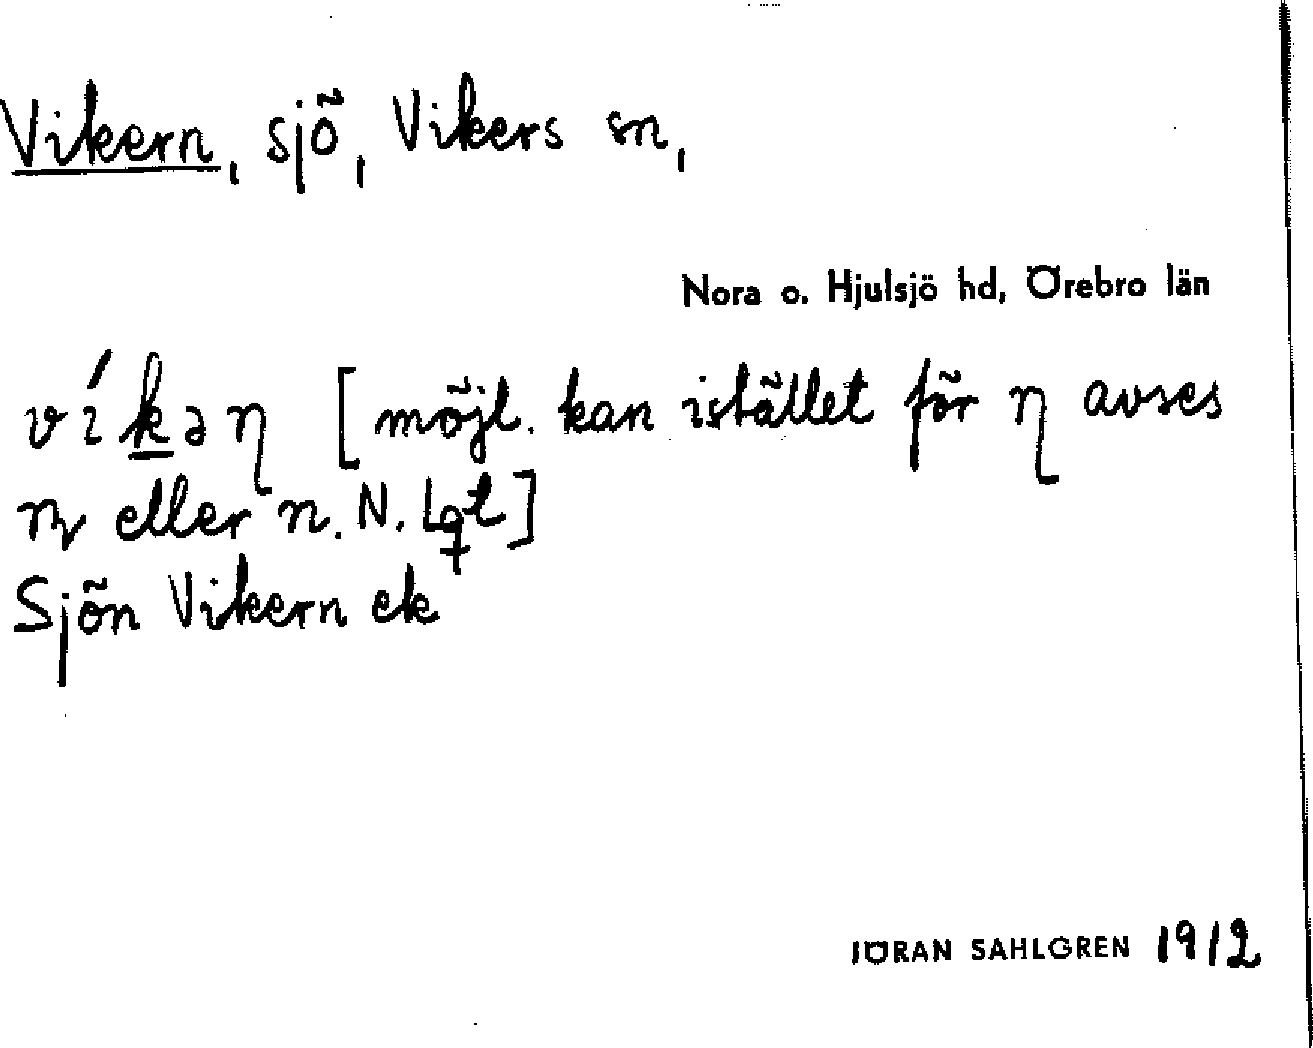 Vikern, sjö, Vikers sn,
Nora o. Hjulsjö hd, Örebro län
víkəη [möjl. kan istället för η avses
eller n. N. Lqt]
Sjön Vikern ek
JÖRAN SAHLGREN 1912